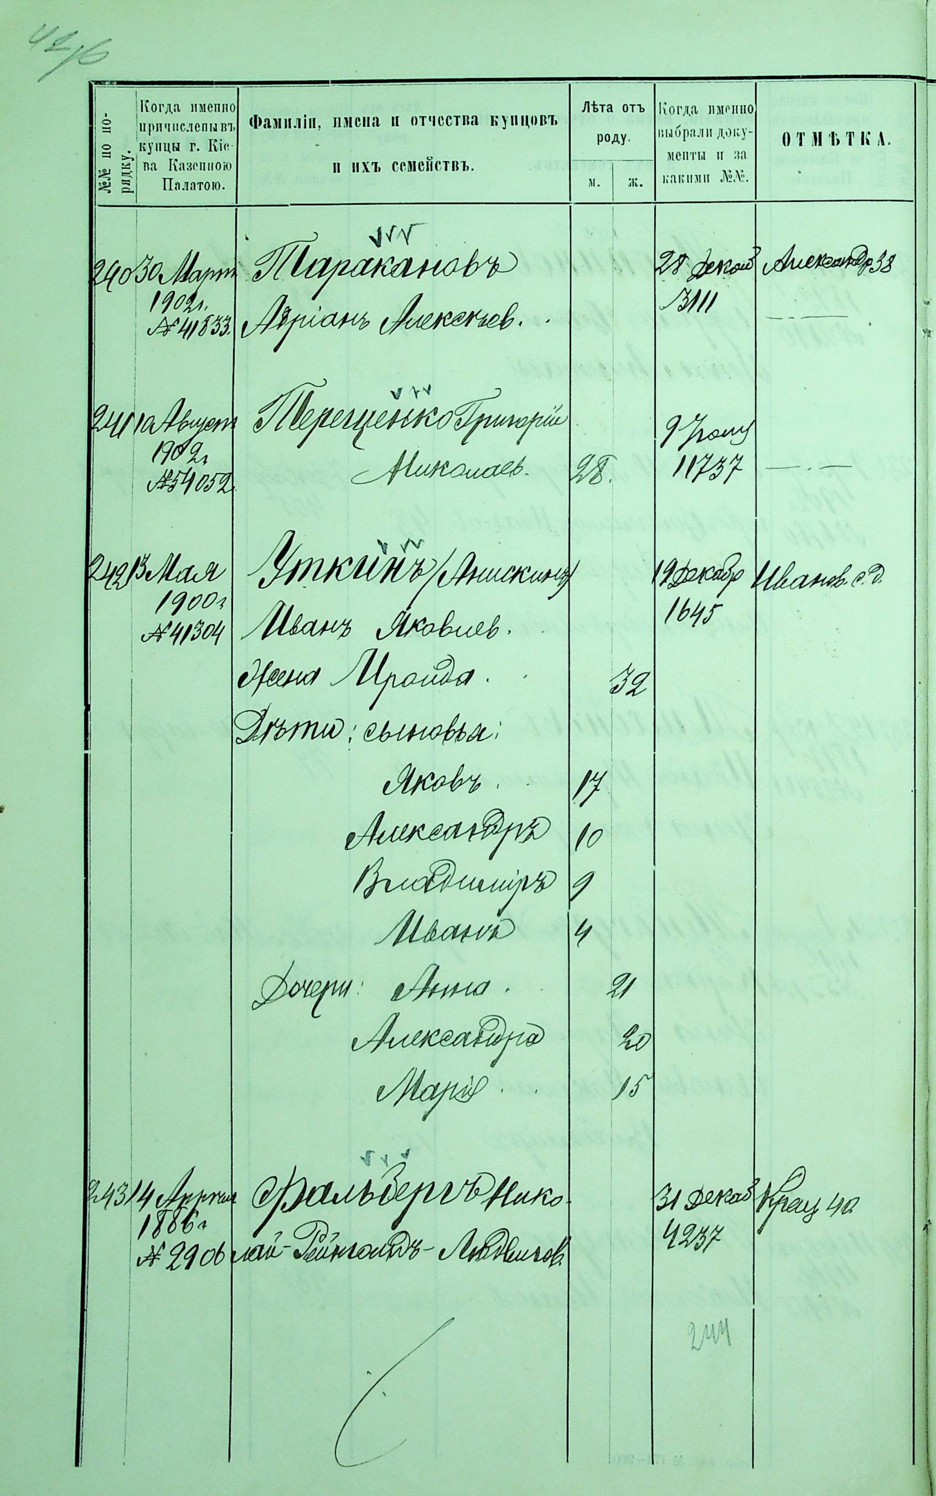 №№ по по-
рядку.
Когда именно
причислены въ
купцы г. Кіе-
ва Казенною
Палатою.
Фамиліи, имена и отчества купцовъ
и ихъ семействъ.
Лѣта отъ
роду.
м. ж.
Когда именно
выбрали доку-
менты и за
какими №№.
ОТМѢТКА.
240 30 Март Таракановъ 28 Декаб Александр 38
1902г. 3111
№ 41833. Адріанъ Алексѣев.
241 10 Август Терещенко Григорій
1902г 11737
№ 54052. Николаев. 28.
242 13 Мая Уткинъ (Анискинъ) 19 Декабр Иванов. с. д.
1900г 1645
№ 41304 Иванъ Яковлев.
Жена Ираида 32
Дѣти: сыновья:
Яковъ 17
Александръ 10
Владиміръ 9
Иванъ 4
Дочери: Анна 21
Александра 20
Марія 15
243 14 Апрѣля Фальбергъ Нико- 31 Декаб Крещ 40
1886г 4237
№ 2906 лай-Рейнгольдъ-Людвигов.
244